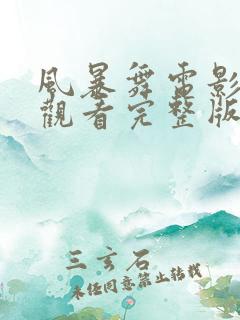 風暴舞電影
觀看完整版
三玄石
未經同意禁止轉載